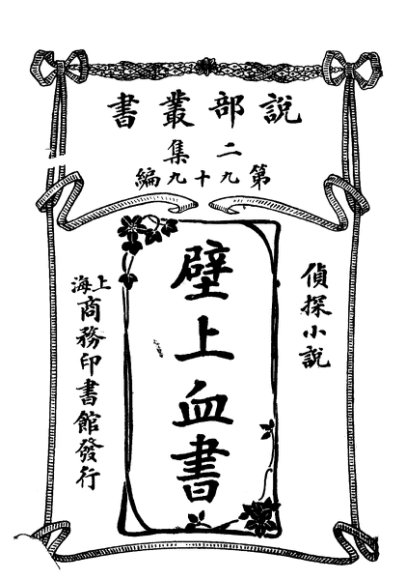 說部叢書
二集
第九十九編
偵探小說
壁上血書
上海
商務印書館發行